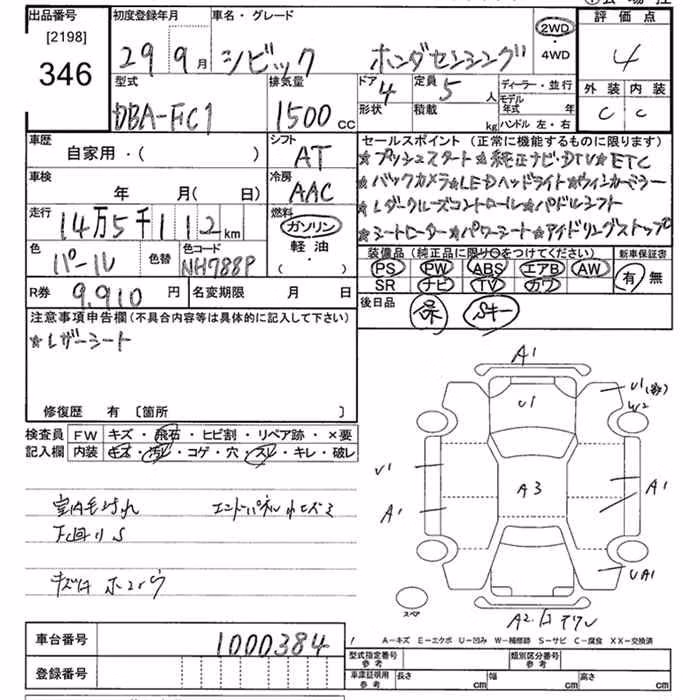 出品番号 初度登録年月 車名・グレード 2WD ・ 4WD 評価点
[2198]
346 29 9月 シビック ホンダセンシング 4
型式 排気量 ドア 定員 ディーラー・並行 外装 内装
DBA-FC1 1500 CC 4 5 人 モデル年式 年 C C
形状 積載 kg ハンドル 左・右
車歴 シフト セールスポイント (正常に機能するものに限ります)
自家用・( ) AT ★プッシュスタート★純正ナビ・DTV★ETC
車検 冷房 ★バックカメラ★LEDヘッドライト★ウィンカーミラー
年 月(日) AAC ★レダークルーズコントロール★パドルシフト
走行 燃料 ★シートヒーター★パワーシート★アイドリングストップ
14万5千112km ガソリン
軽油
・( )
色 色替 色コード 装備品 (純正品に限り○をつけてください) 新車保証書
パール NH788P PS PW ABS エアB AW 有 無
SR ナビ TV カワ
R券 9,910 円 名変期限 月 日 後日品 保 Sキー
注意事項申告欄 (不具合内容等は具体的に記入して下さい)
★レザーシート
修復歴 有 〔箇所 〕
検査員 FW キズ・飛石・ヒビ割・リペア跡・×要
記入欄 内装 キズ・汚レ・コゲ・穴・スレ・キレ・破レ
A1
U1 U1 W2
U1
A1 A3 A1
UA1
スペア
A2
室内毛 エンドパネル
下回りS
車台番号 1000384
A-キズ E-エクボ U-凹み W-補修跡 S-サビ C-腐食 XX-交換済
登録番号 型式指定番号 参考 類別区分番号 参考
車庫証明用 参考 長さ cm 幅 cm 高さ cm